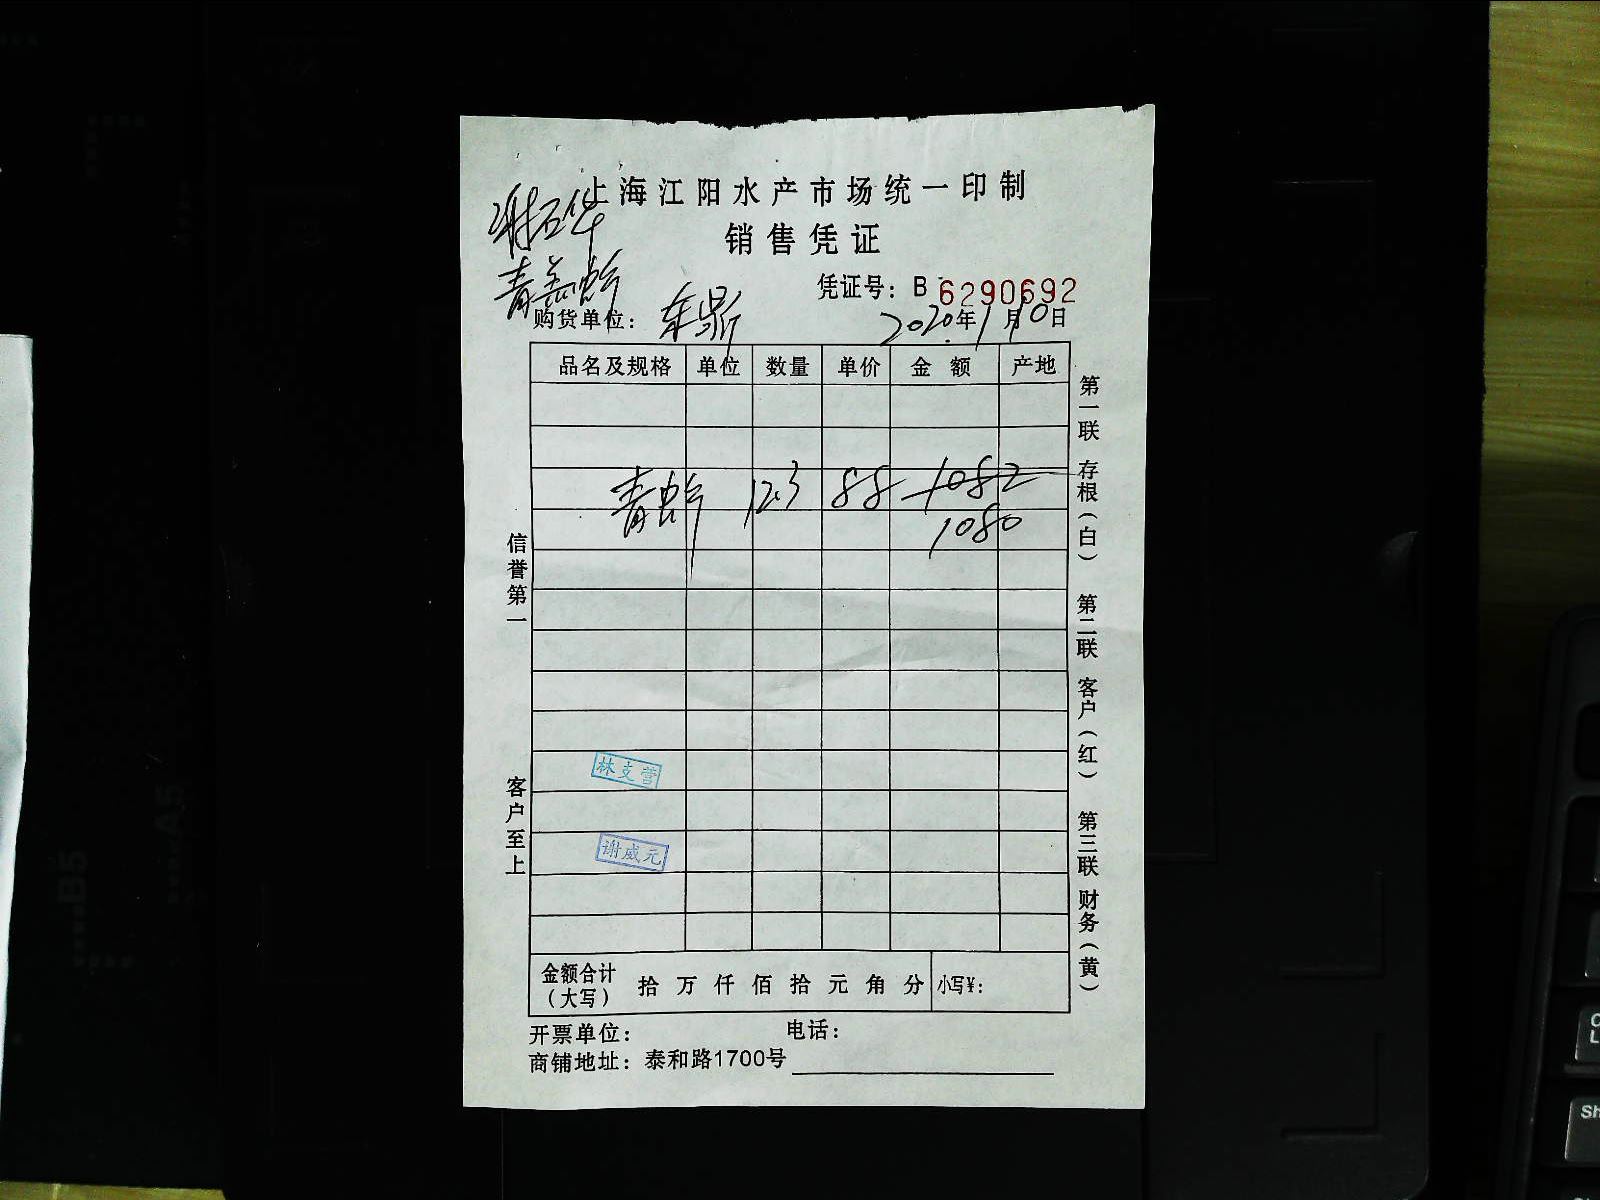 上海江阳水产市场统一印制
销售凭证
凭证号：B 6290692
购货单位： 东鼎
2020年1月10日
品名及规格 单位 数量 单价 金额 产地
青虾 12.3 88 1082
1080
金额合计（大写） 拾 万 仟 佰 拾 元 角 分 小写¥：
开票单位： 电话：
商铺地址：泰和路1700号
信誉第一
客户至上
第一联 存根（白） 第二联 客户（红） 第三联 财务（黄）
林支营
谢威元
B5
A5